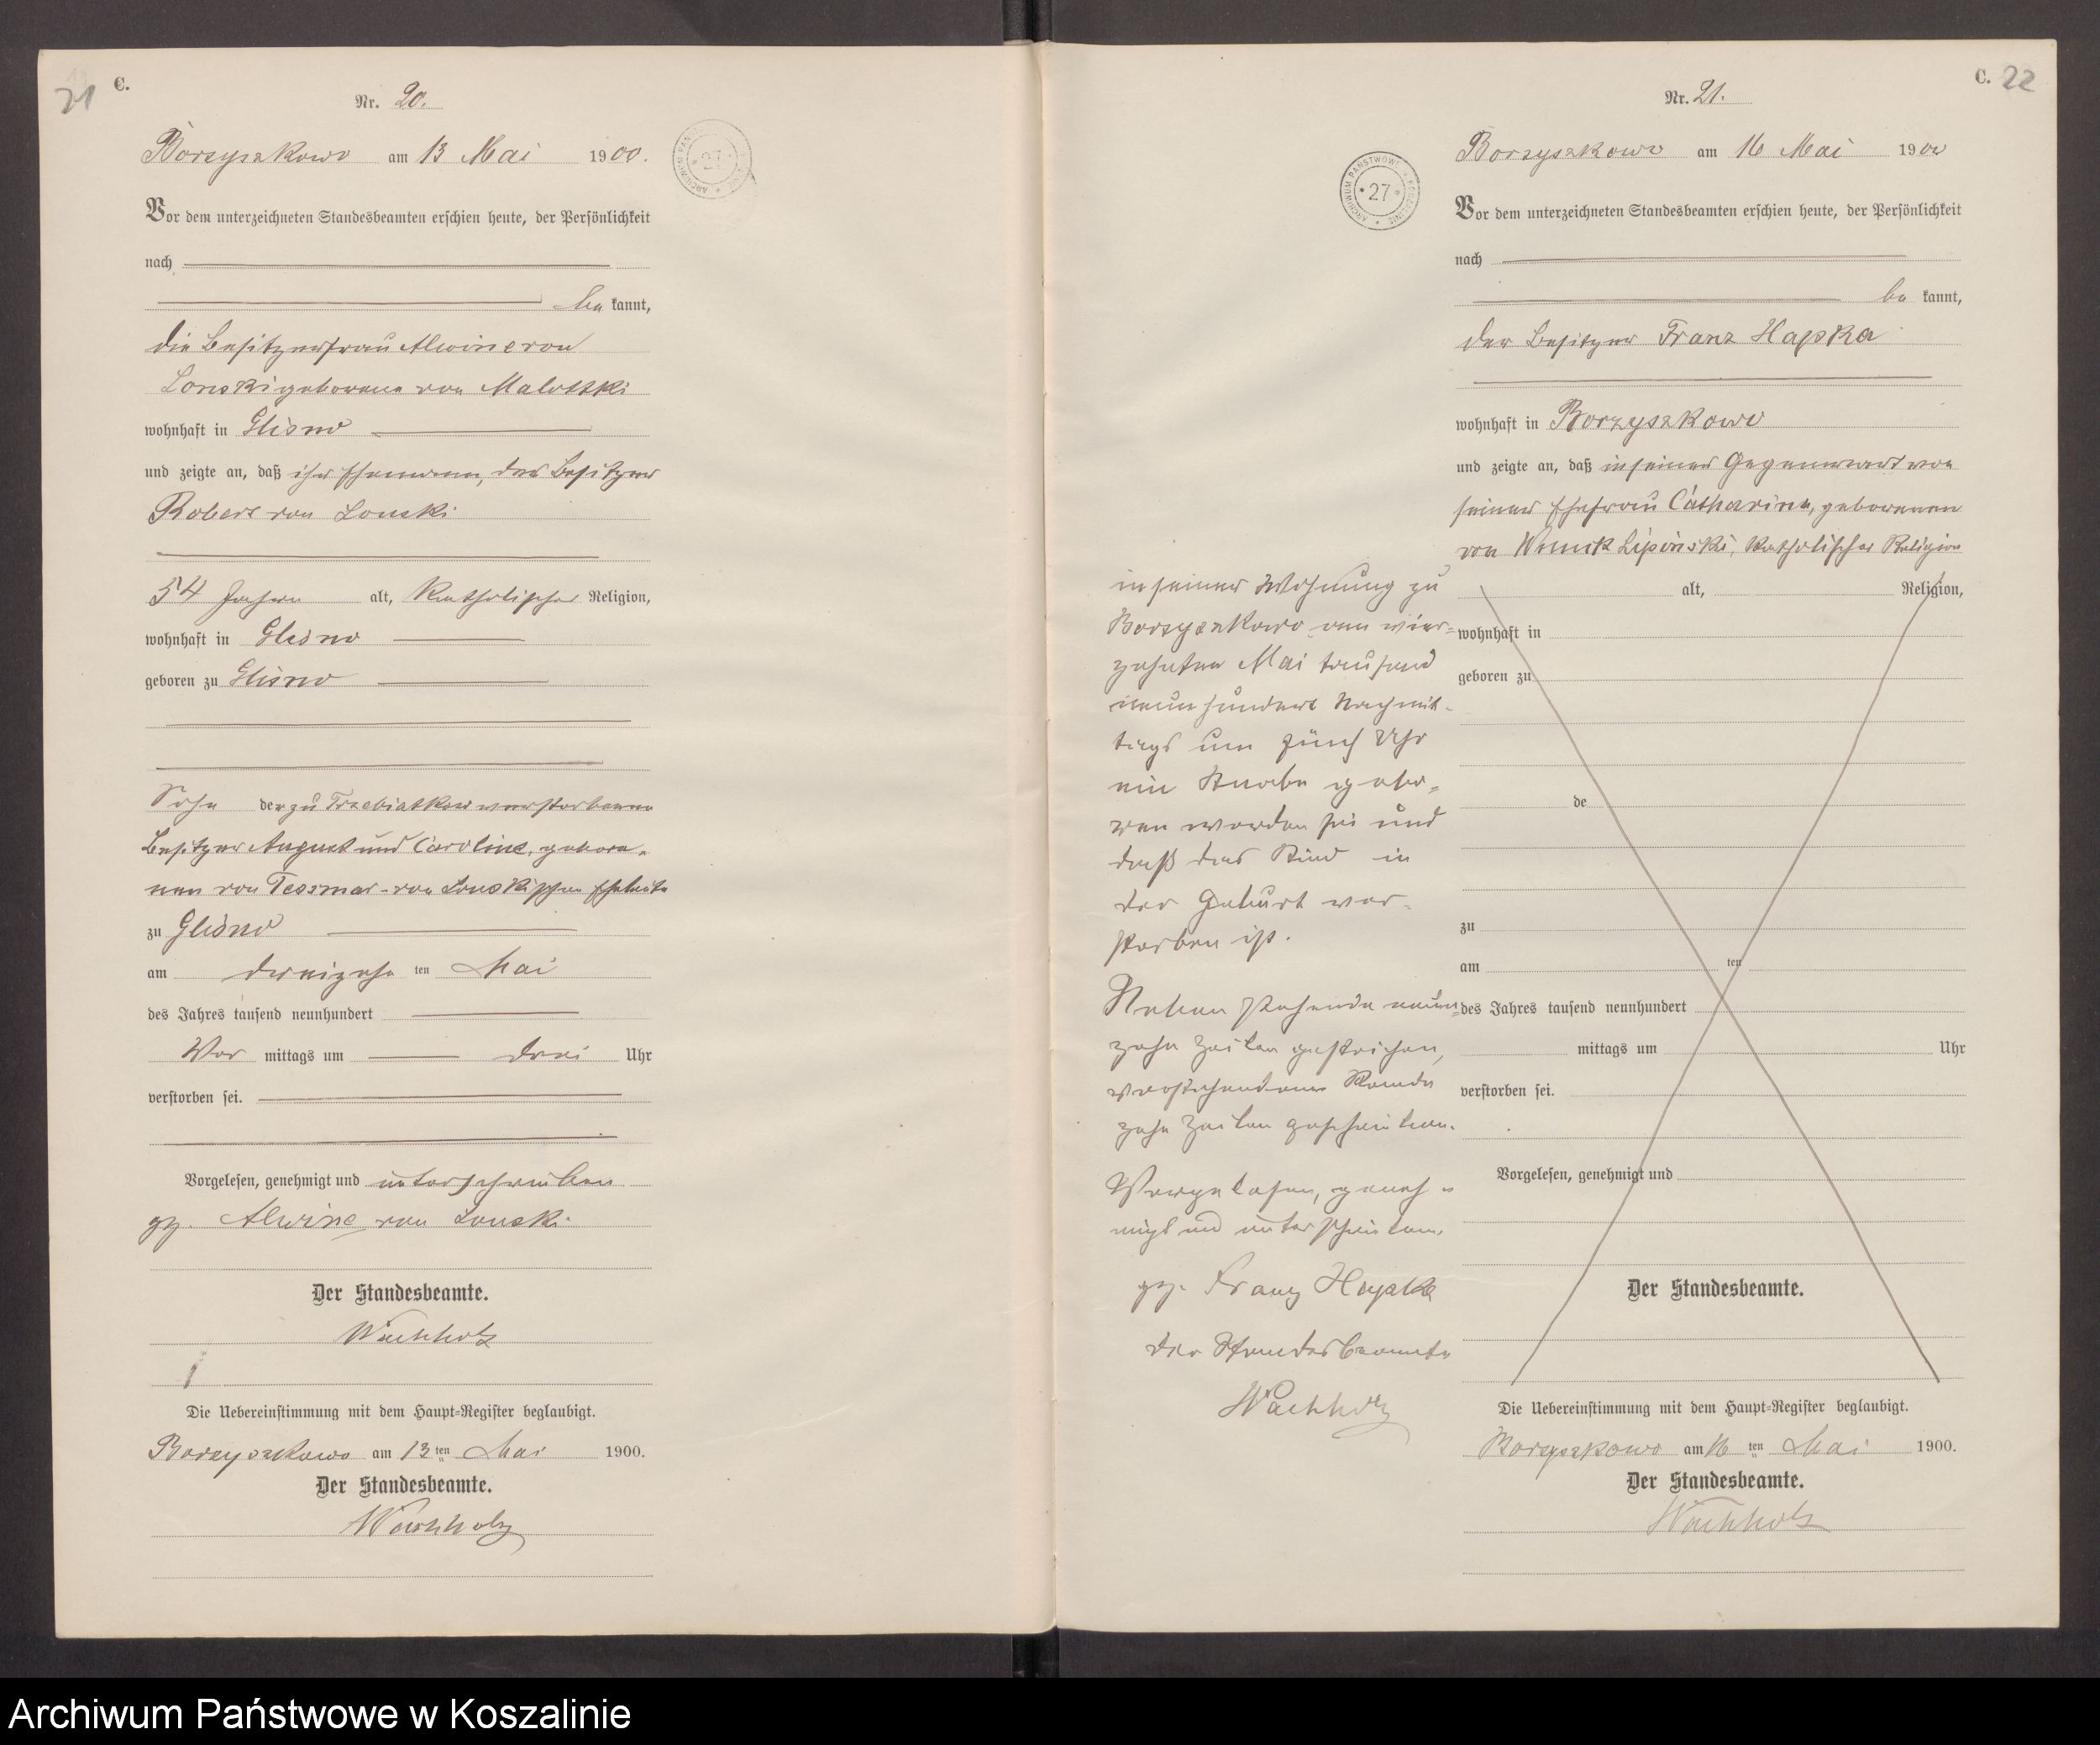 21
C.
Nr. 20.
Borzyszkowo am 13 Mai 1900.
ARCHIWUM PAŃSTWOWE
* 27 *
Vor dem unterzeichneten Standesbeamten erschien heute, der Persönlichkeit
nach
be kannt,
die Besitzerfrau Alwine von
Lonski geborene von Malottki
wohnhaft in Glisno
und zeigte an, daß ihr Ehemann, der Besitzer
Robert von Lonski
54 Jahre alt, katholischer Religion,
wohnhaft in Glisno
geboren zu Glisno
Sohn der zu Trzebiatkow verstorbenen
Besitzer August und Caroline, gebore-
nen von Tessmar-von Lonskischen Eheleute
zu Glisno
am dreizehn ten Mai
des Jahres tausend neunhundert
Vor mittags um drei Uhr
verstorben sei.
Vorgelesen, genehmigt und unterschrieben
gz. Alwine von Lonski
Der Standesbeamte.
Wachholz
Die Uebereinstimmung mit dem Haupt-Register beglaubigt.
Borzyszkowo am 13 ten Mai 1900.
Der Standesbeamte.
Wachholz
C. 22
Nr. 21.
Borzyszkowo am 16 Mai 1900
ARCHIWUM PAŃSTWOWE W KOSZALINIE
* 27 *
Vor dem unterzeichneten Standesbeamten erschien heute, der Persönlichkeit
nach
be kannt,
der Besitzer Franz Hapka
wohnhaft in Borzyszkowo
und zeigte an, daß in seiner Gegenwart von
seiner Ehefrau Catharina, geborenen
von Lipinski, katholischer Religion
in seiner Wohnung zu
Borzyszkowo am vier-
zehnten Mai tausend
neunhundert Nachmit-
tags um fünf Uhr
ein Knabe gebo-
ren worden sei und
daß das Kind in
der Geburt ver-
storben ist.
Nebenstehende neun-
zehn Zeilen gestrichen,
vorstehendem Rande
zehn Zeilen geschrieben.
Vorgelesen, geneh-
migt und unterschrieben.
gz. Franz Hapka
Der Standesbeamte
Wachholz
alt, Religion,
wohnhaft in
geboren zu
de
zu
am ten
des Jahres tausend neunhundert
mittags um Uhr
verstorben sei.
Vorgelesen, genehmigt und
Der Standesbeamte.
Die Uebereinstimmung mit dem Haupt-Register beglaubigt.
Borzyszkowo am 16 ten Mai 1900.
Der Standesbeamte.
Wachholz
Archiwum Państwowe w Koszalinie